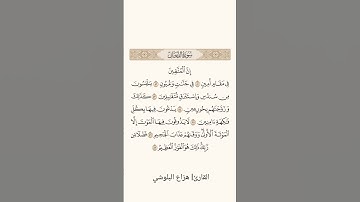 سورة الدخان
إن المتقين
في مقام أمين ۝ في جنت وعيون ۝ يلبسون
من سندس وإستبرق متقبلين ۝ كذلك
وزوجنهم بحور عين ۝ يدعون فيها بكل
فكهة ءامنين ۝ لا يذوقون فيها الموت إلا
الموتة الأولى ووقىهم عذاب الجحيم ۝ فضلا من
ربك ذلك هو الفوز العظيم ۝
القارئ| هزاع البلوشي